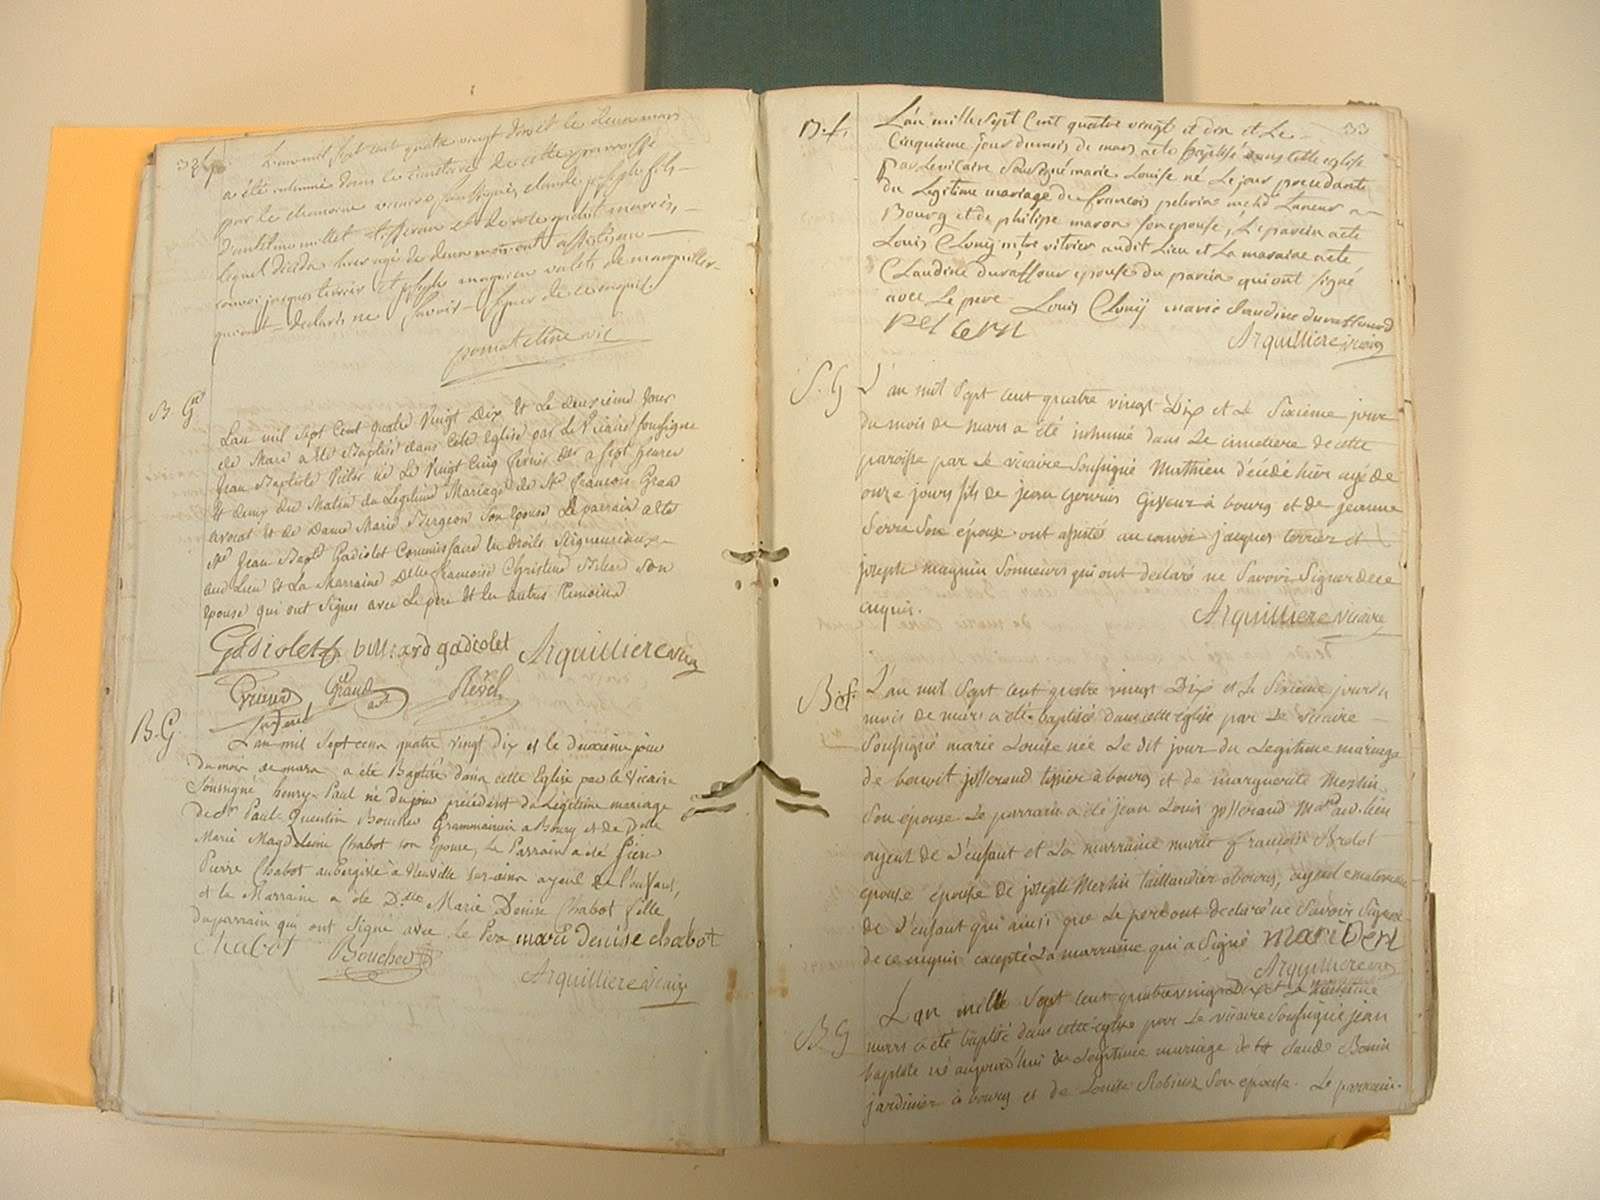 L'an mil sept cent quatre vingt dix et le deux mars
a été inhumé dans le cimetiere de cette parroisse
par le chanoine vicaire soussigné, claude joseph fils
d'anthelme millet tisseran et de
lequel décéda hier agé de deux mois ont assisté au
convoi jacques terrier et joseph magnin valets de marguiller
qui ont declarés ne savoir signer de ce enquis.
vic
B. Gon
L'an mil sept Cent quatre Vingt Dix et Le deuxieme Jour
de Mars a été Baptisé dans Cete Eglise par Le Vicaire soussigné
Jean Baptiste Victor né Le Vingt Cinq fevrier der a sept heures
et demy du Matin du Legitime Mariage de Me francois
avocat et de Dame Marie Bergeon Son Epouse Le parrain a été
Mr Jean Bapte Gadiolet Commissaire en droits Seigneuriaux
aud Lieu et La Marraine Delle francoise Christine son
Epouse qui ont Signés avec Le pere et les autres Temoins
Gadiolet gadiolet Arquilliere vicr
Revel
B. G.
L'an mil sept cent quatre vingt dix et le deuxieme jour
du mois de mars a été Baptisé dans cette Eglise par le vicaire
Soussigné henry-Paul né du jour précédent du Légitime mariage
de Sr Paul-Quentin Boucher Grammairien a Bourg et de Dlle
Marie Magdeleine Chabot son Epouse, Le Parrain a été sieur
Pierre Chabot aubergiste à Neuville sur-ain ayeul de l'enfant,
et la Marraine a été Dlle Marie Denise Chabot fille
du parrain qui ont signé avec le Pere marie denise chabot
Chabot Boucher
Arquilliere vicaire
33
B. f.
L'an mille sept Cent quatre vingt et dix et Le
Cinquieme jour du mois de mars a ete baptisé dans cette eglise
Par le vicaire Sousigné marie Louise né Le jour precedant
du Legitime mariage de francois pelerin
Bourg et de philipe maron son epouse, Le parein a ete
Louis Clouy mtre vitrier audit Lieu et La maraine a ete
Claudine duraffour epouse du parein qui ont signé
avec Le pere Louis Clouy marie claudine duraffourd
pelerin
Arquilliere vicaire
S. G
L'an mil sept cent quatre vingt Dix et Le Sixieme jour
du mois de mars a été inhumé dans Le cimetiere de cette
paroisse par Le vicaire Soussigné Mathieu décédé hier agé de
onze jours fils de jean gervais Giveur à bourg et de jeanne
Serve Son épouse ont assistés au convoi jacques terrier et
joseph magnin Sonneurs qui ont declaré ne Savoir Signer de ce
enquis.
Arquilliere vicaire
B. f.
L'an mil Sept cent quatre vingt Dix et Le Sixieme jour du
mois de mars a été baptisée dans cette église par Le vicaire
Soussigné marie Louise née Le dit jour du Legitime mariage
de benoit josserand tissier à bourg et de marguerite Merlin
Son épouse Le parrain a été jean Louis josserand Md aud. lieu
ayeul de L'enfant et La marraine marie françoise Bretot
epouse épouse de joseph Merlin taillandier a bourg, ayeule maternelle
de L'enfant qui ainsi que Le pere ont declaré ne Savoir Signer
de ce enquis excepté La marraine qui a Signé
Arquilliere vic
B. G
L'an mille Sept cent quatre vingt Dix et Le huitieme
mars a été baptisé dans cette église par Le vicaire Soussigné jean
baptiste né aujourd'hui du Légitime mariage de claude Bonin
jardinier à bourg et de Louise Robines Son epouse. Le parrain